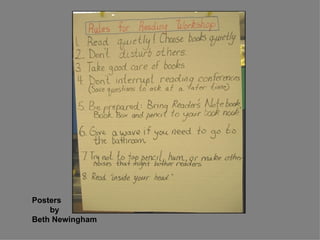 Rules for Reading Workshop
1. Read quietly! Choose books quietly
2. Don't disturb others.
3. Take good care of books
4. Don't interrupt reading conferences
(Save questions to ask at a later time)
5. Be prepared: Bring Reader's Notebook,
Book Box and pencil to your book nook
6. Give a wave if you need to go to
the bathroom
7. Try not to tap pencil, hum, or make other
noises that might bother readers
8. Read "inside your head"
Posters
by
Beth Newingham